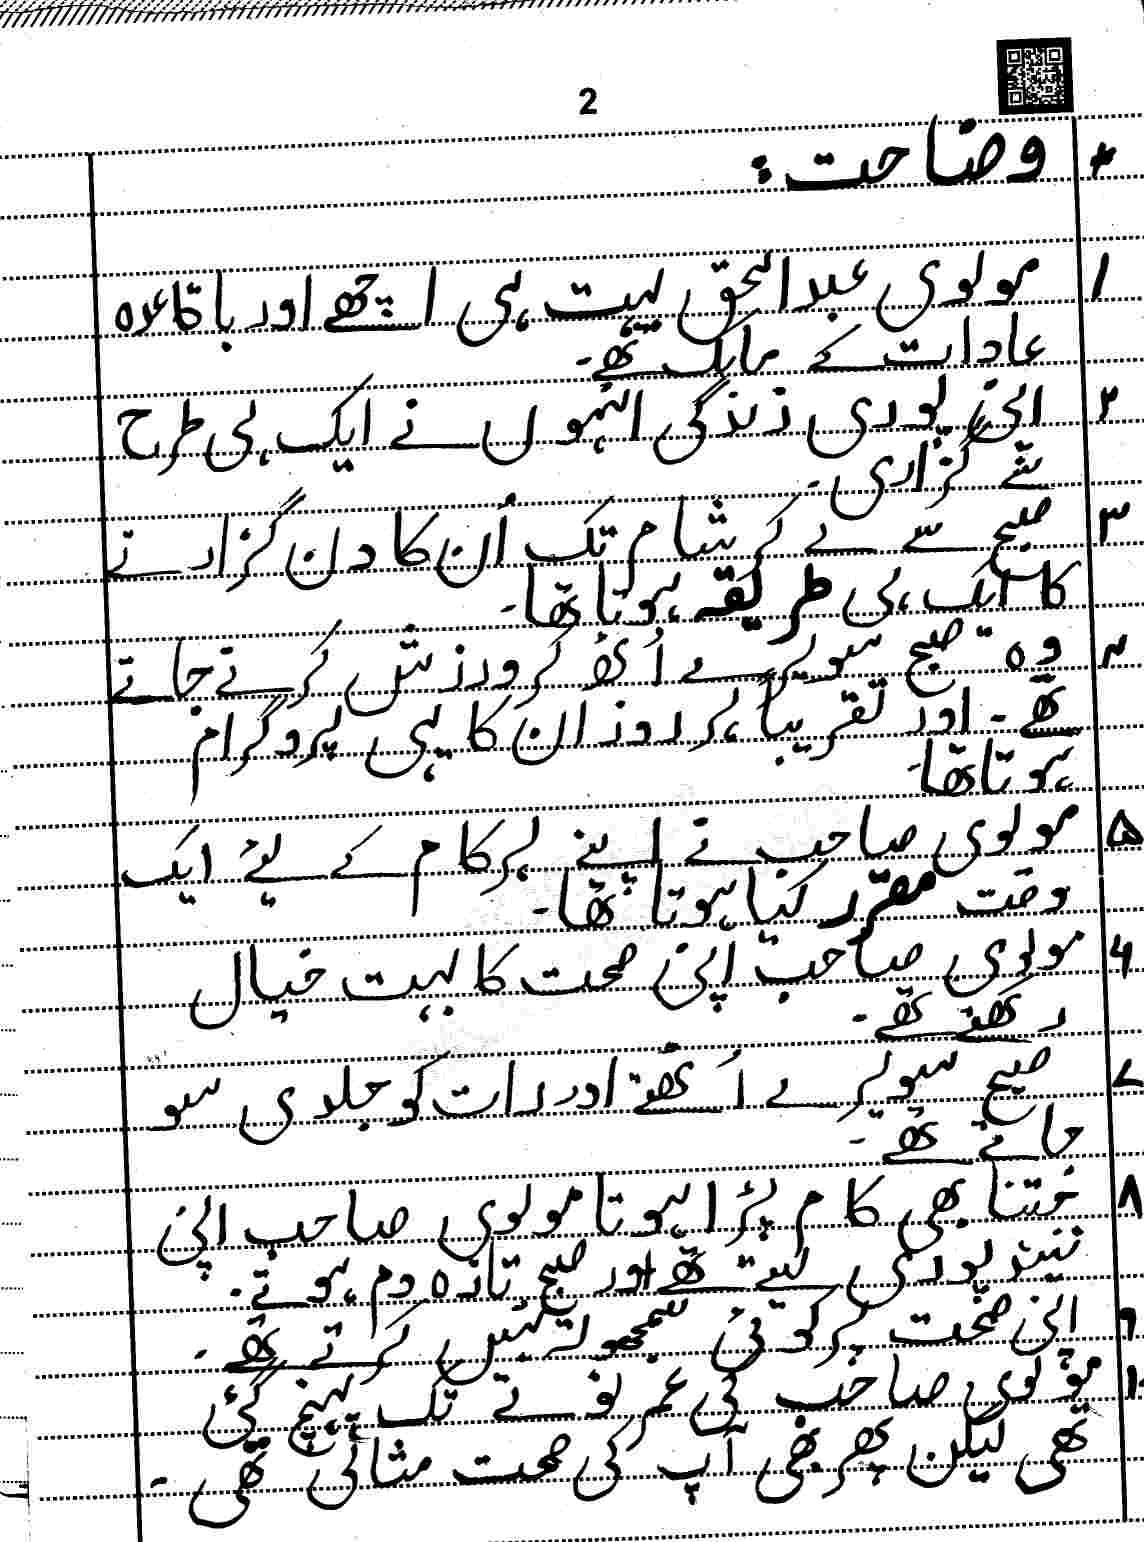 2
* وضاحت :
۱ مولوی عبدالحق بہت ہی اچھے اور باقاعدہ
عادات کے مالک تھے۔
۲ اپنی پوری زندگی انہوں نے ایک ہی طرح
سے گزاری۔
۳ صبح سے لے کر شام تک اُن کا دن گزارنے
کا ایک ہی طریقہ ہوتا تھا۔
۴ وہ صبح سویرے اُٹھ کر ورزش کرنے جاتے
تھے۔ اور تقریباً ہر روز ان کا یہی پروگرام
ہوتا تھا۔
۵ مولوی صاحب نے اپنے ہر کام کے لیے ایک
وقت مقرر کیا ہوتا تھا۔
۶ مولوی صاحب اپنی صحت کا بہت خیال
رکھتے تھے۔
۷ صبح سویرے اُٹھتے اور رات کو جلدی سو
جاتے تھے۔
۸ جتنا بھی کام پڑا ہوتا مولوی صاحب اپنی
نیند پوری لیتے تھے اور صبح تازہ دم ہوتے۔
۹ اپنی صحت پر کوئی سمجھوتہ نہیں کرتے تھے۔
۱۰ مولوی صاحب کی عمر نوے تک پہنچ گئی
تھی لیکن پھر بھی آپ کی صحت مثالی تھی۔